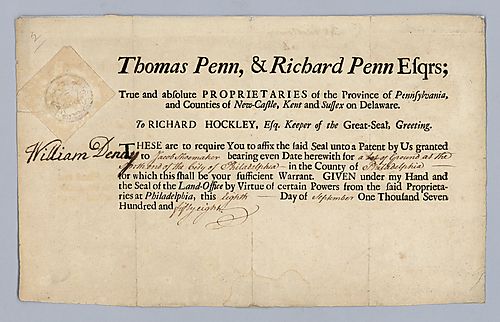 Thomas Penn, & Richard Penn Eſqrs;
True and abſolute PROPRIETARIES of the Province of Pennſylvania,
and Counties of New-Caſtle, Kent and Suſſex on Delaware.
To RICHARD HOCKLEY, Eſq. Keeper of the Great-Seal, Greeting.
William Denny
THESE are to require You to affix the ſaid Seal unto a Patent by Us granted
to Jacob Shoemaker bearing even Date herewith for a Lot of Ground at the
North End of the City of Philadelphia in the County of Philadelphia
for which this ſhall be your ſufficient Warrant. GIVEN under my Hand and
the Seal of the Land-Office by Virtue of certain Powers from the ſaid Proprieta-
ries at Philadelphia, this eighth Day of September One Thouſand Seven
Hundred and fifty eight.